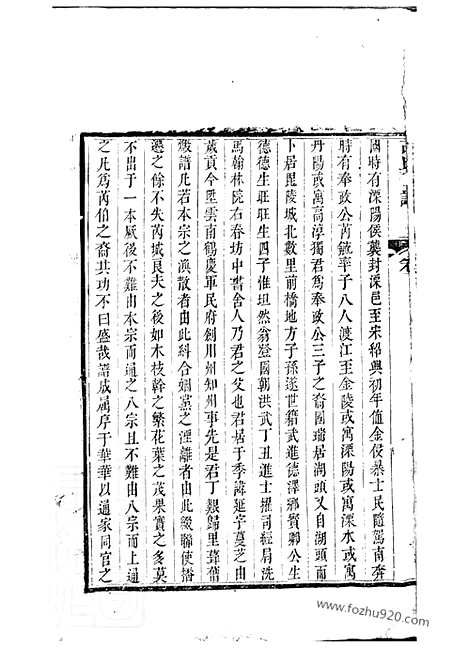 國時有溧陽侯襲封溧邑至宋紹興初年值金侵暴士民隨駕南奔
時有奉政公芮毓率子八人渡江至金陵或寓溧陽或寓溧水或寓
丹陽或寓高淳獨君爲奉政公三子之裔國瑞居湖頭又自湖頭而
卜居毘陵城北數里前橋地方子孫遂世籍武進德澤鄉賓卿公生
德德生旺旺生四子惟坦然翁登國朝洪武丁丑進士擢司經局洗
馬翰林院右春坊中書舍人乃君之父也君居于季諱延字蔓芝由
歲貢今陞雲南鶴慶軍民府劍川州知州事先是君丁艱歸里葺舊
譜凡若本宗之渙散者由此糾合姻黨之浬離者由此綴聯使播
遷之餘不失芮城良夫之後如木枝幹之繁花葉之茂果實之多莫
不出于一本厥後不難由本宗而通之八宗且不難由八宗而上通
之凡爲芮伯之裔其功不曰盛哉譜成屬序于華華以過家同官之
www.fozhu920.com